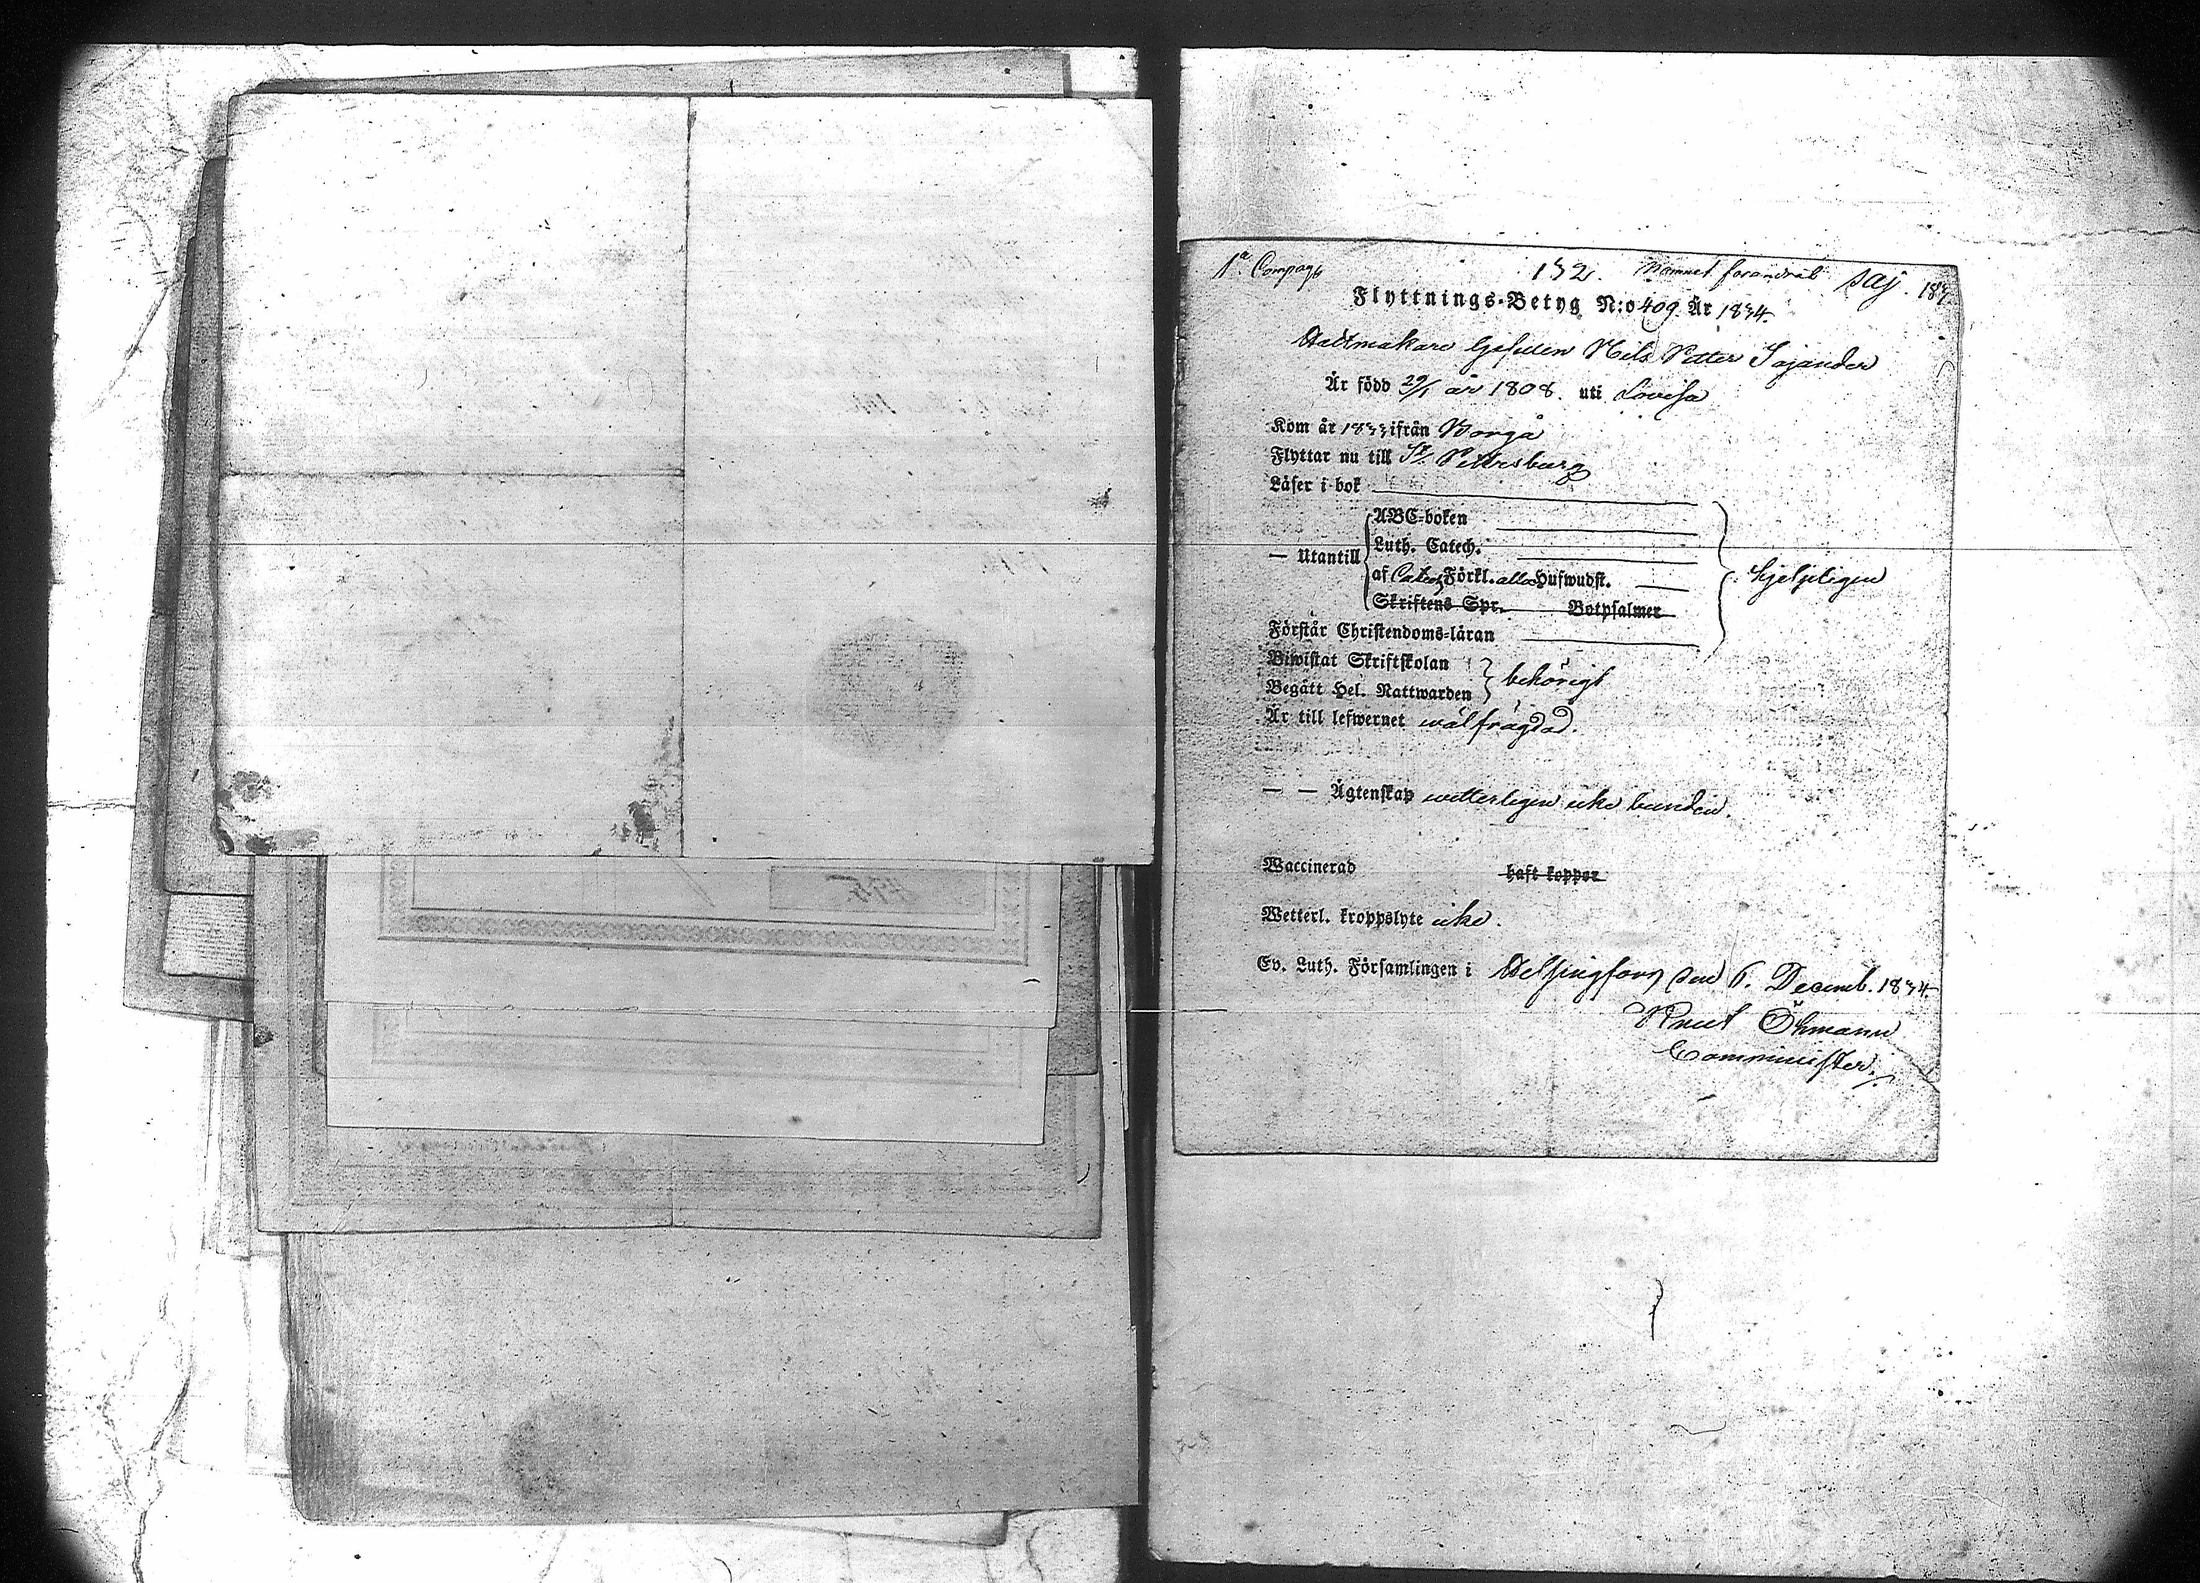 1a. Compag
132. Namnet förändradt Saj. 183
Flyttnings-Betyg N:o 409 År 1834.
Gesällen Nils Petter Sajander
Är född 29/1 år 1808. uti Lovisa
Kom år 1833 ifrån Borgå
Flyttar nu till St. Petersburg
Läser i bok
ABC-boken
Luth. Catech.
— Utantill
af Catech Förkl. alla Hufwudst.
hjelpligen
Skriftens Spr. Botpsalmer
Förstår Christendoms-läran
Biwistat Skriftskolan
behörigt
Begått Hel. Nattwarden
Är till lefwernet wälfrägdad.
— — Ägtenskap wetterligen icke bunden.
Waccinerad haft koppor
Wetterl. kroppslyte icke.
Ev. Luth. Församlingen i Helsingfors den 6. Decemb. 1834.
Knut Öhmann
Comminister.